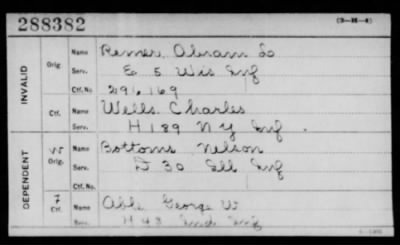 288382
(3-M-4)
INVALID
Orig.
Name Remer Abram So
Serv. E 5 Wis Inf
Ctf. No. 291,169
Ctf.
Name Wells Charles
Serv. H 189 N Y Inf.
DEPENDENT
Orig.
Name Bottoms Nelson
Serv. D 30 Ill Inf
Ctf. No.
Ctf.
Name Able George W
Serv. H 48 Ind Inf